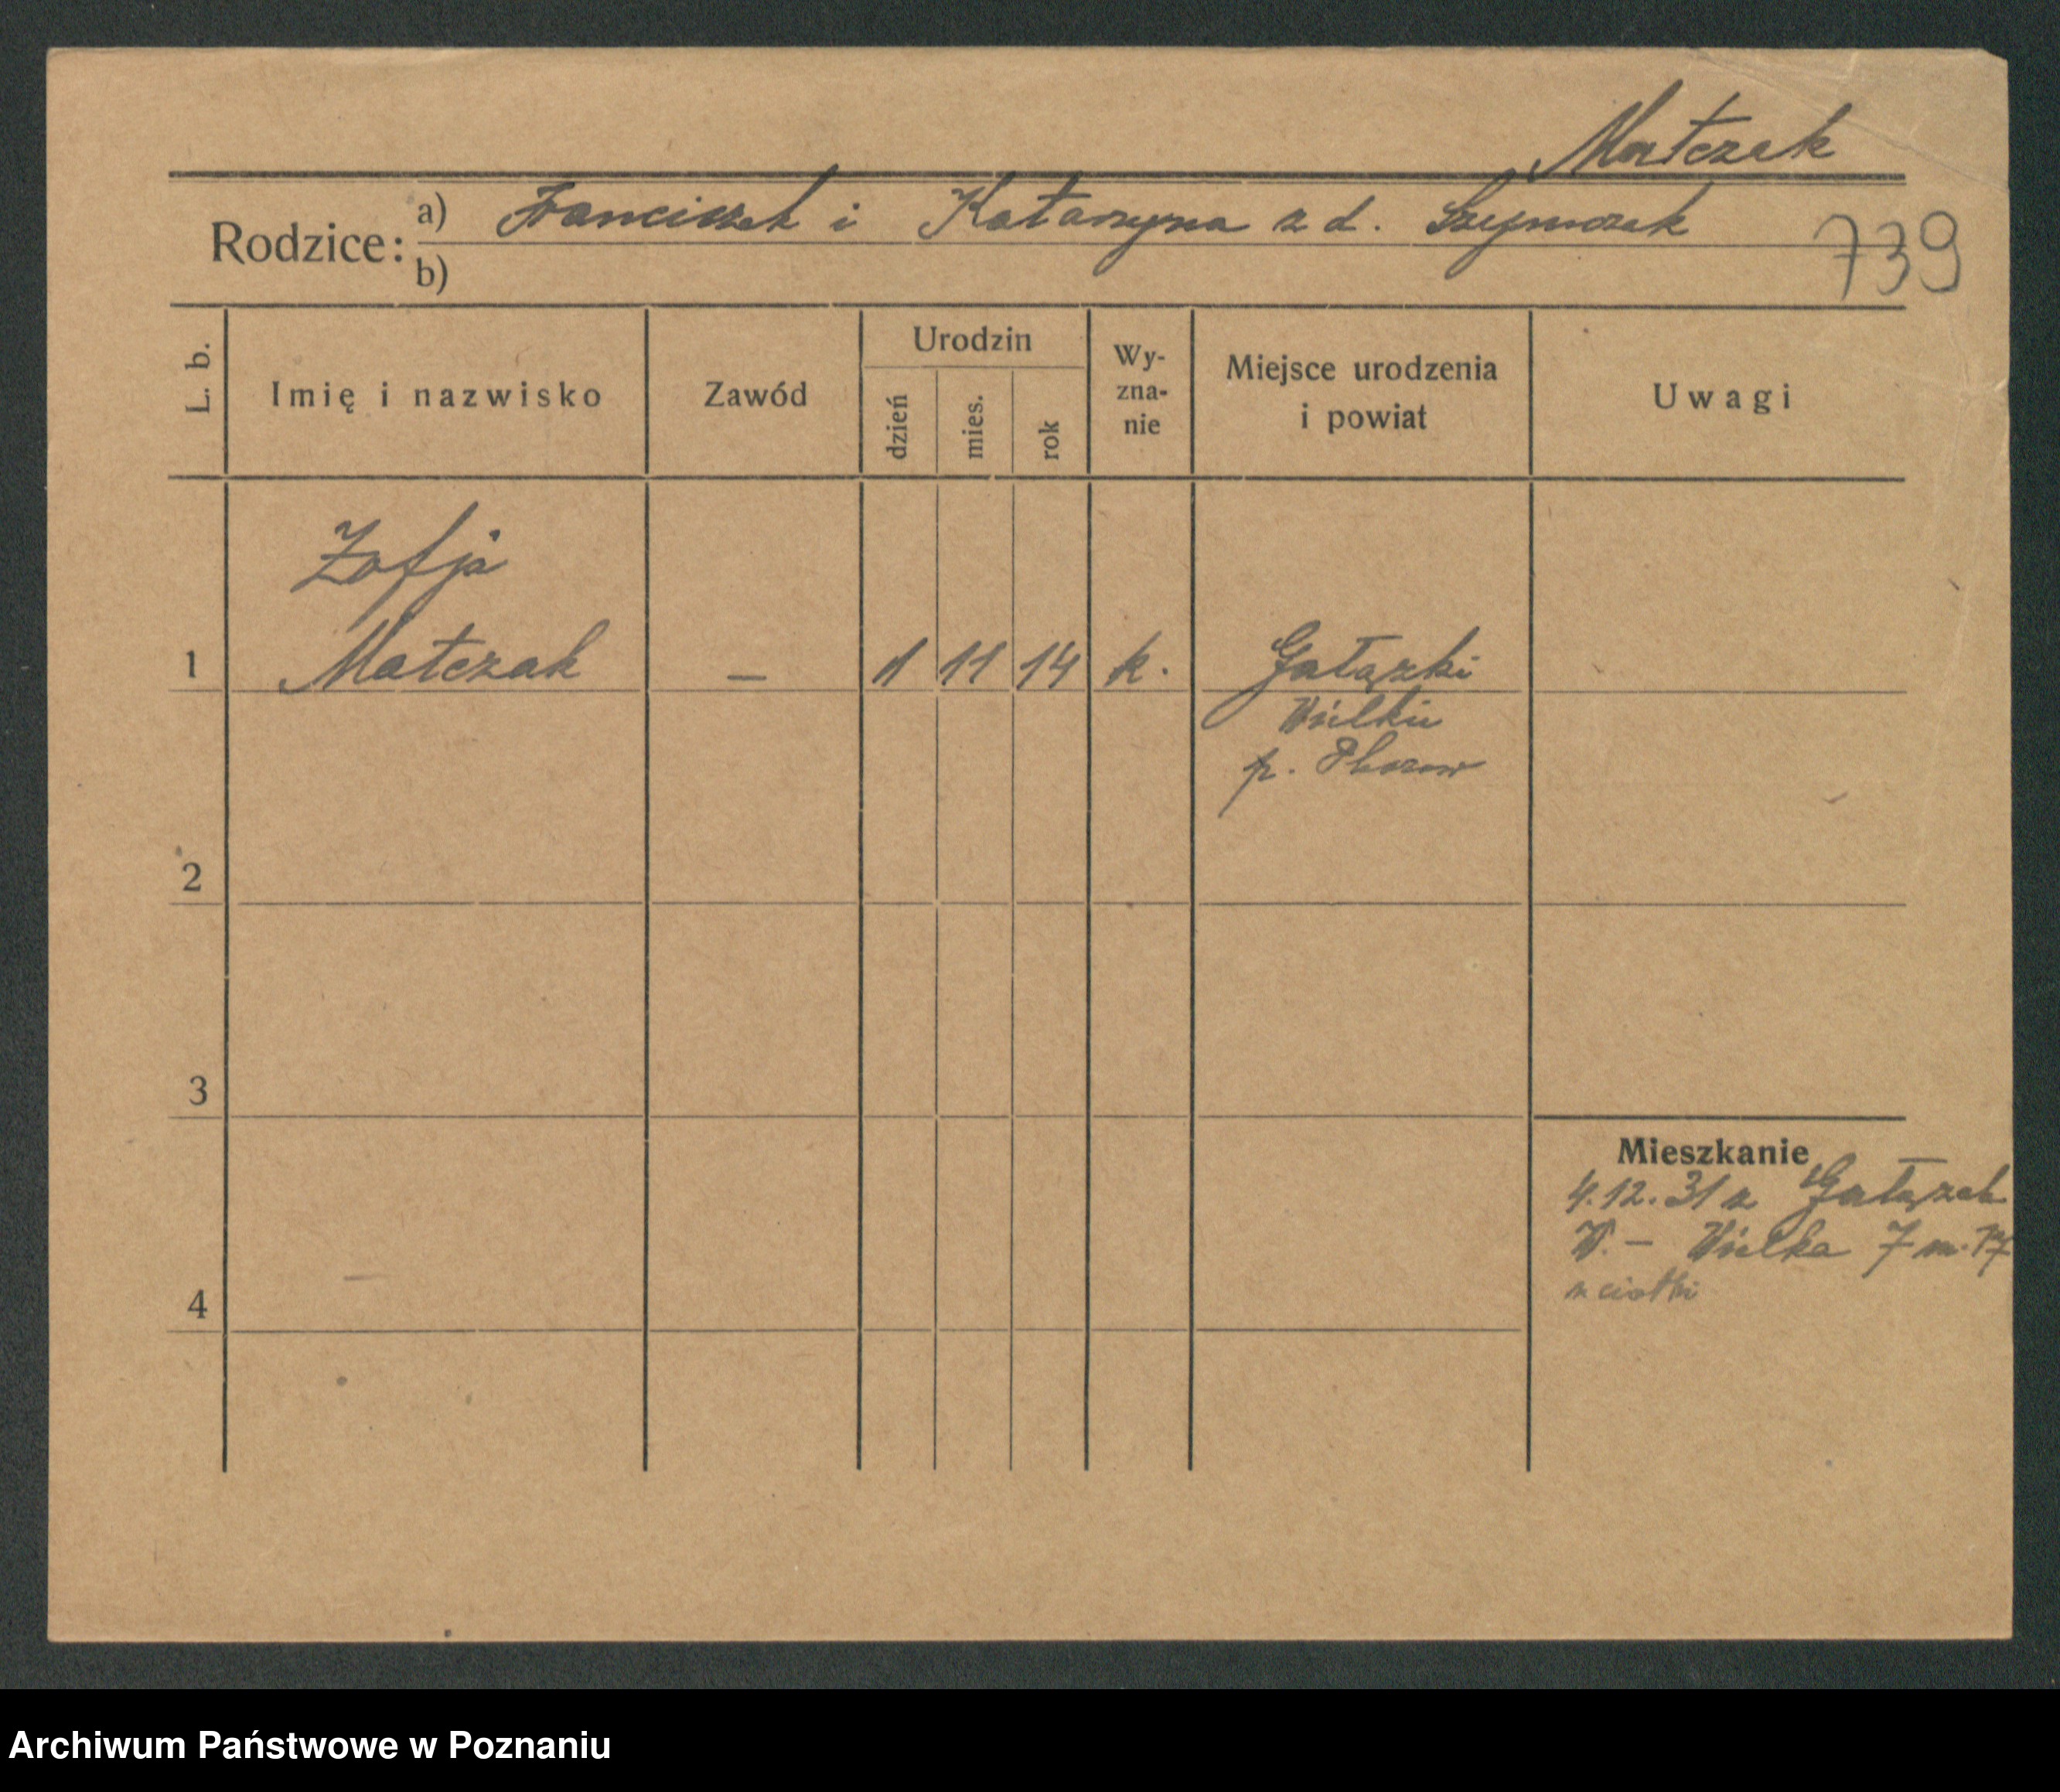 Matczak
Rodzice: a) Franciszek i Katarzyna z d. Szymczak
b)
739
L. b.
Imię i nazwisko
Zawód
Urodzin
dzień
mies.
rok
Wy-
zna-
nie
Miejsce urodzenia
i powiat
Uwagi
Zofja
1 Matczak — 1 11 14 k. Gałązki
Wielkie
p.
2
3
Mieszkanie
4.12.31 z Gałązek
W. – Wielka 7 m. 17
u ciotki
4
Archiwum Państwowe w Poznaniu